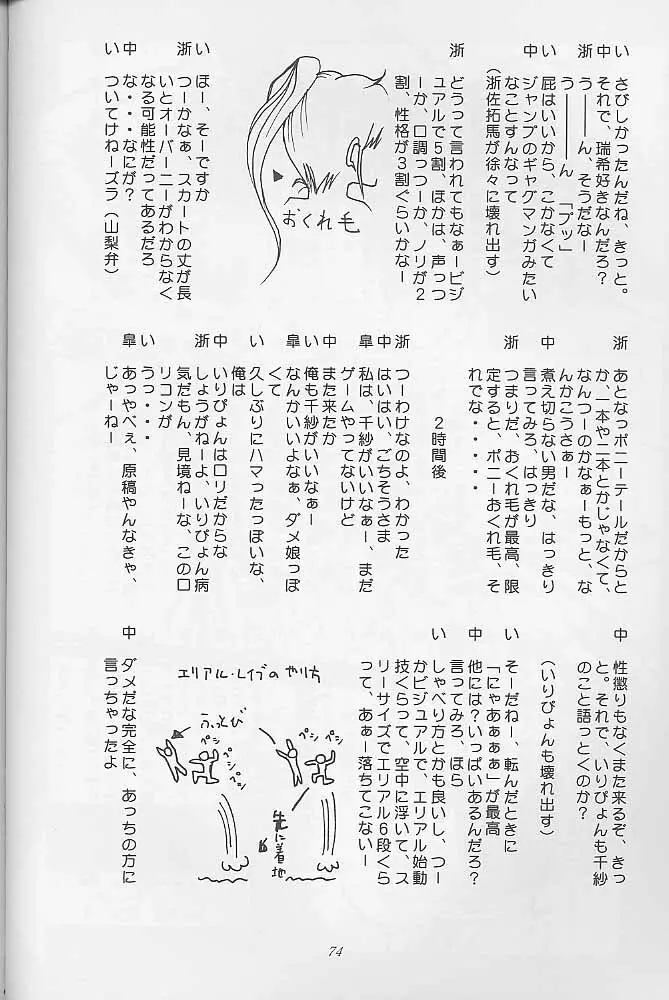 い　さびしかったんだね、きっと。
中　それで、瑞希好きなんだろ？
浙　う――ん、そうだなー
う――ん　「プッ」
い　屁はいいから、こかなくて
中　ジャンプのギャグマンガみたい
なことすんなって
（浙佐拓馬が徐々に壊れ出す）
浙　どうって言われてもなぁービジ
ュアルで５割、ほかは、声っつ
ーか、口調っつーか、ノリが２
割、性格が３割ぐらいかなー
おくれ毛
い　ほー、そーですか
浙　つーかなぁ、スカートの丈が長
いとオーバーニーがわからなく
なる可能性だってあるだろ
中　な・・・なにが？
い　ついてけねーズラ（山梨弁）
浙　あとなっポニーテールだからと
か、一本や二本とかじゃなくて、
なんつーのかなぁーもっと、な
んかこうさぁー
中　煮え切らない男だな、はっきり
言ってみろ、はっきり
浙　つまりだ、おくれ毛が最高、限
定すると、ポニーおくれ毛、そ
れでな・・・・
２時間後
浙　つーわけなのよ、わかった
中　はいはい、ごちそうさま
皐　私は、千紗がいいなぁー、まだ
ゲームやってないけど
中　また来たか
い　俺も千紗がいいなぁー
皐　なんかいいよなぁ、ダメ娘っぽ
くて
い　久しぶりにハマったっぽいな、
俺は
中　いりぴょんはロリだからな
浙　しょうがねーよ、いりぴょん病
気だもん、見境ねーな、このロ
リコンが
い　うっ・・・
皐　あっやべぇ、原稿やんなきゃ、
じゃーねー
中　性懲りもなくまた来るぞ、きっ
と。それで、いりぴょんも千紗
のこと語っとくのか？
（いりぴょんも壊れ出す）
い　そーだねー、転んだときに
「にゃあぁぁぁ」が最高
中　他には？いっぱいあるんだろ？
言ってみろ、ほら
い　しゃべり方とかも良いし、つー
かビジュアルで、エリアル始動
技くらって、空中に浮いて、ス
リーサイズでエリアル６段くら
って、あぁー落ちてこないー
エリアル・レイブのやり方
ふっとび
ペシ
ペシ
ペシ
ペシ
ペシ
先に着地
中　ダメだな完全に、あっちの方に
言っちゃったよ
74